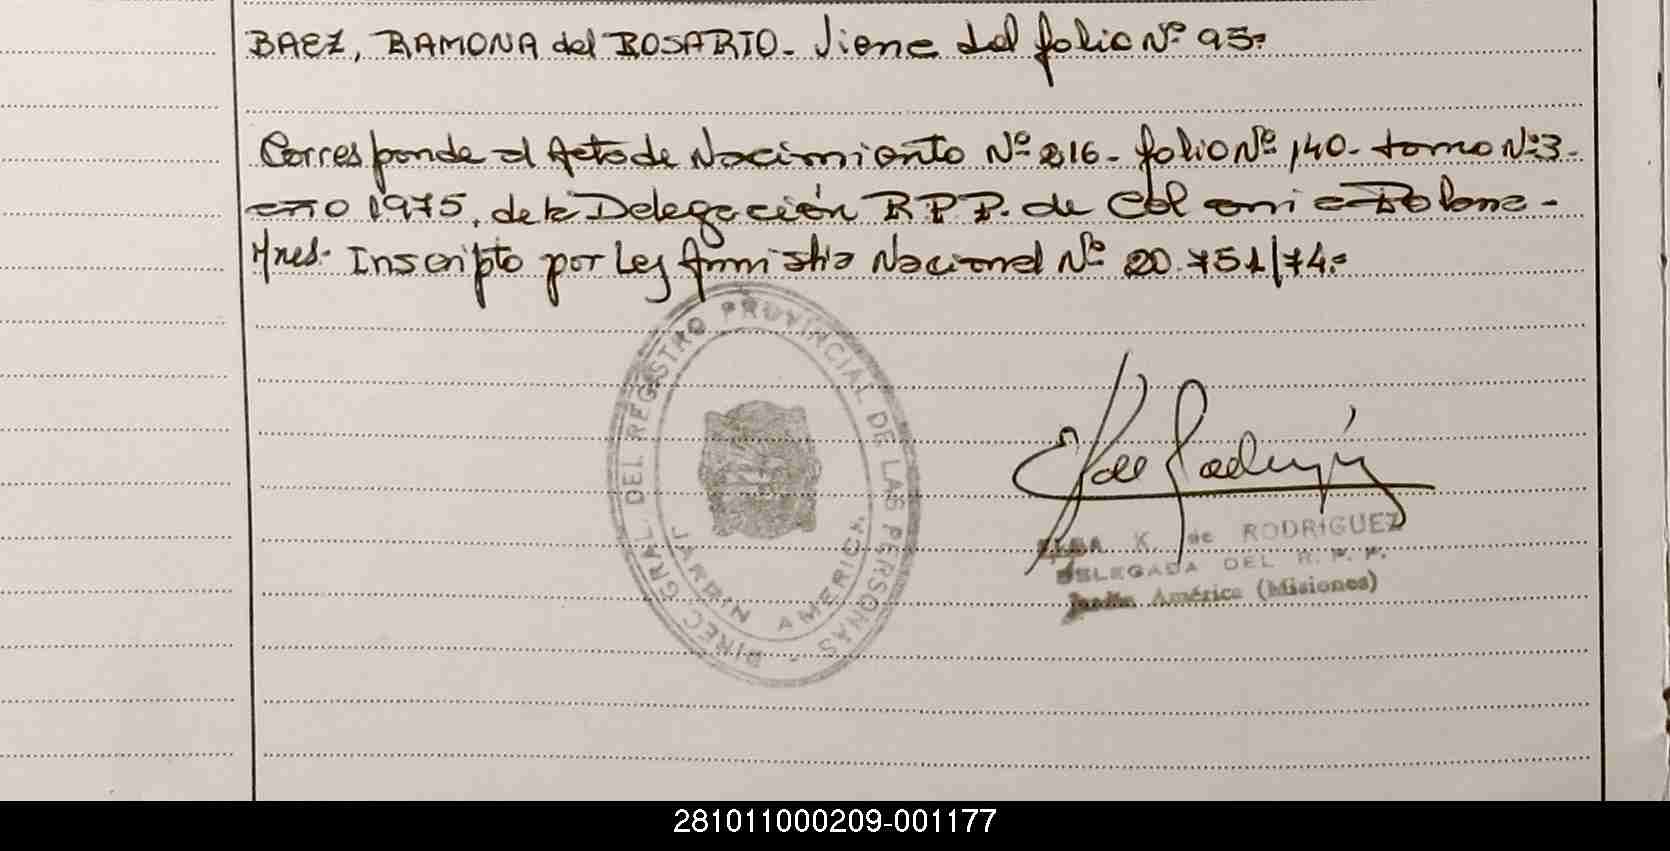 BAEZ, RAMONA del ROSARIO - Viene del folio Nº 95.-
Corresponde al Acta de Nacimiento Nº 816 - folio Nº 140 - tomo Nº 3 -
año 1975, de la Delegación R.P.P. de Colonia Polana -
Mnes. Inscripto por Ley Amnistia Nacional Nº 20.751/74.-
DIREC. GRAL. DEL REGISTRO PROVINCIAL DE LAS PERSONAS -
JARDIN AMERICA
K. de RODRIGUEZ
DELEGADA DEL R. P. P.
Jardín América (Misiones)
281011000209-001177